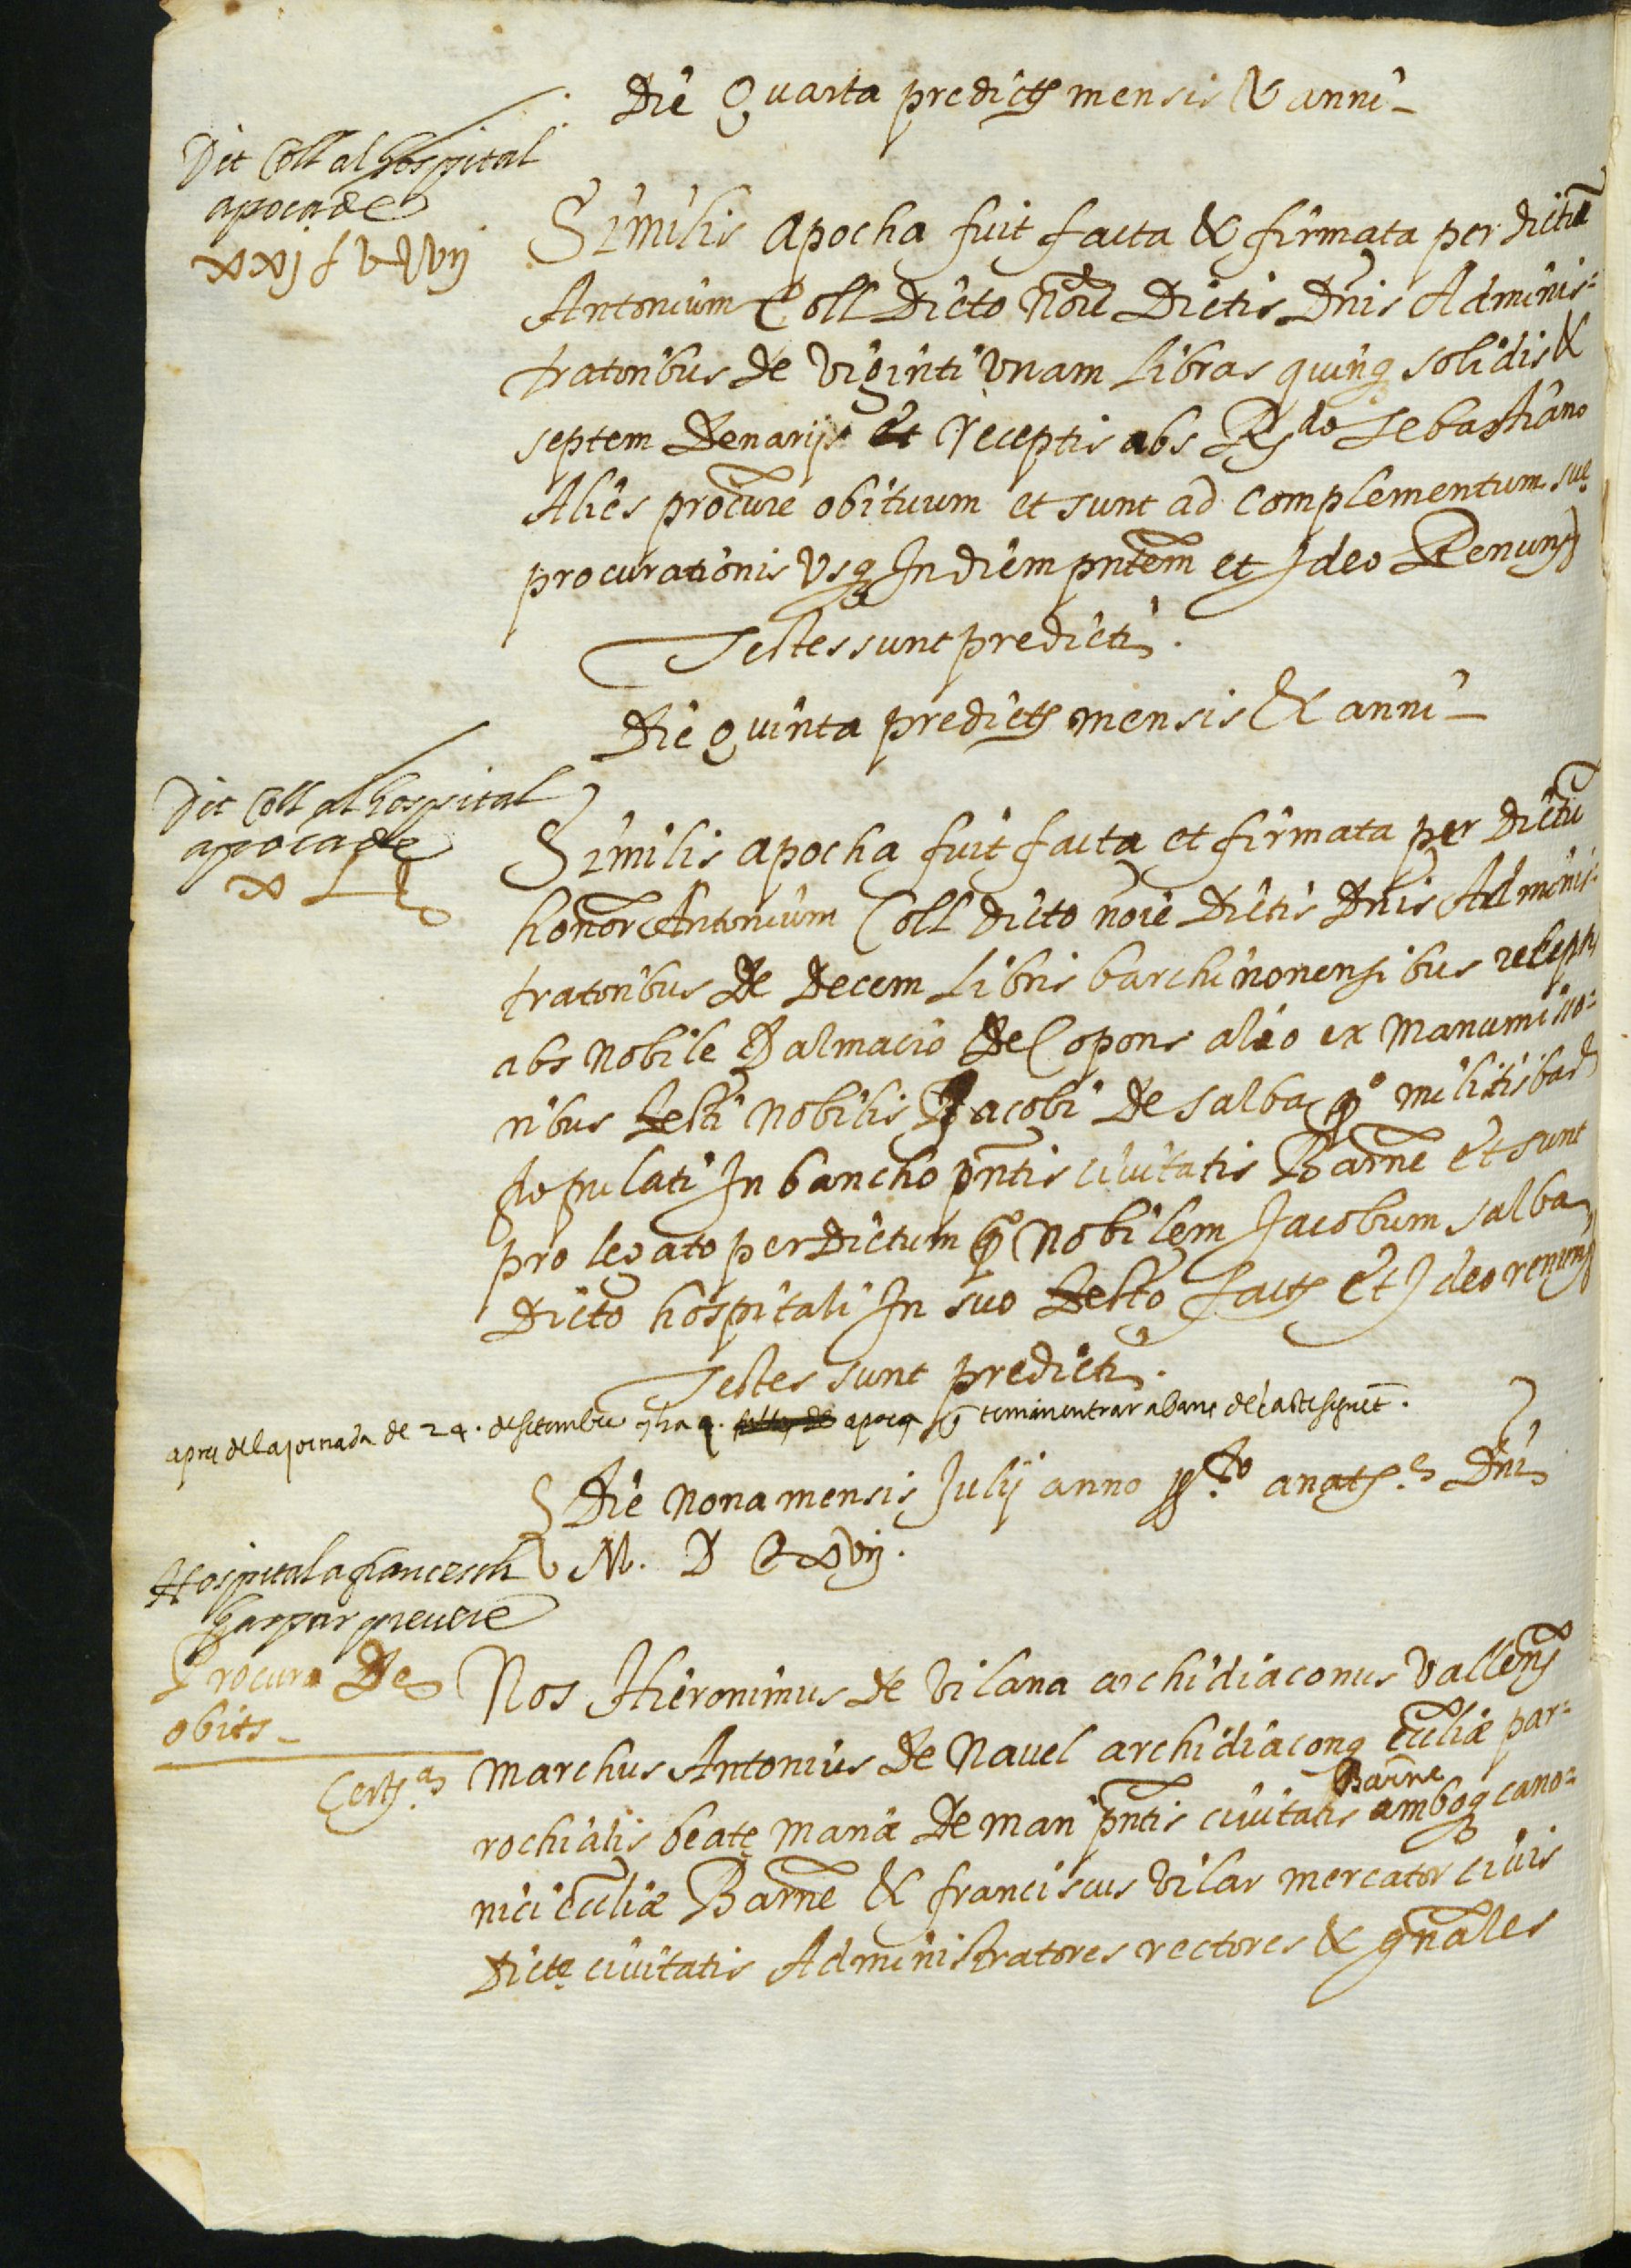 Die Quarta predicti mensis & anni
Dit Coll al hospital
apoca de
xxj £ v s vij
Similis apocha fuit facta & firmata per dictũ
Antonium Coll dicto noĩe dictis Dnis Adminis=
tratoribus de viginti unam libras quinq solidis &
septem denarijs et receptis abs Rdo Sebastiano
Alies procure obituum et sunt ad complementum sue
procurationis usq In diem pntem et Ideo Renun
Testes sunt predicti.
Die quinta predicti mensis & anni
Dit Coll al hospital
apoca de
x L
Similis apocha fuit facta et firmata per dictũ
honor Antonium Coll dicto noĩe dictis Dnis Adminis-
tratoribus de decem libris barchinonensibus recept
abs nobile Dalmacio de Copons alio ex manumisso=
ribus testi nobilis Jacobi de salba qo militis bar
populati In bancho pntis civitatis Barne et sunt
pro legato per dictum qo nobilem Jacobum salba
dicto hospitali In suo testo fact et Ideo renun
Testes sunt predicti.
apres de la jornada de 24. de setembre y ha 4. apoca q̃ se signẽt.
Die nona mensis Julij anno anat Dni
M. D C xvij.
Hospital a francesch
gaspar
Procura de
obits
Nos Hieronimus de Vilana archidiaconus Vallen
Marchus Antonius de Navel archidiaconq eccliæ par=
Cert
rochialis beatę mariæ de mari pntis civitatis Barne amboq cano=
nici eccliæ Barne & franciscus Vilar mercator civis
dictę civitatis Administratores rectores & gnales